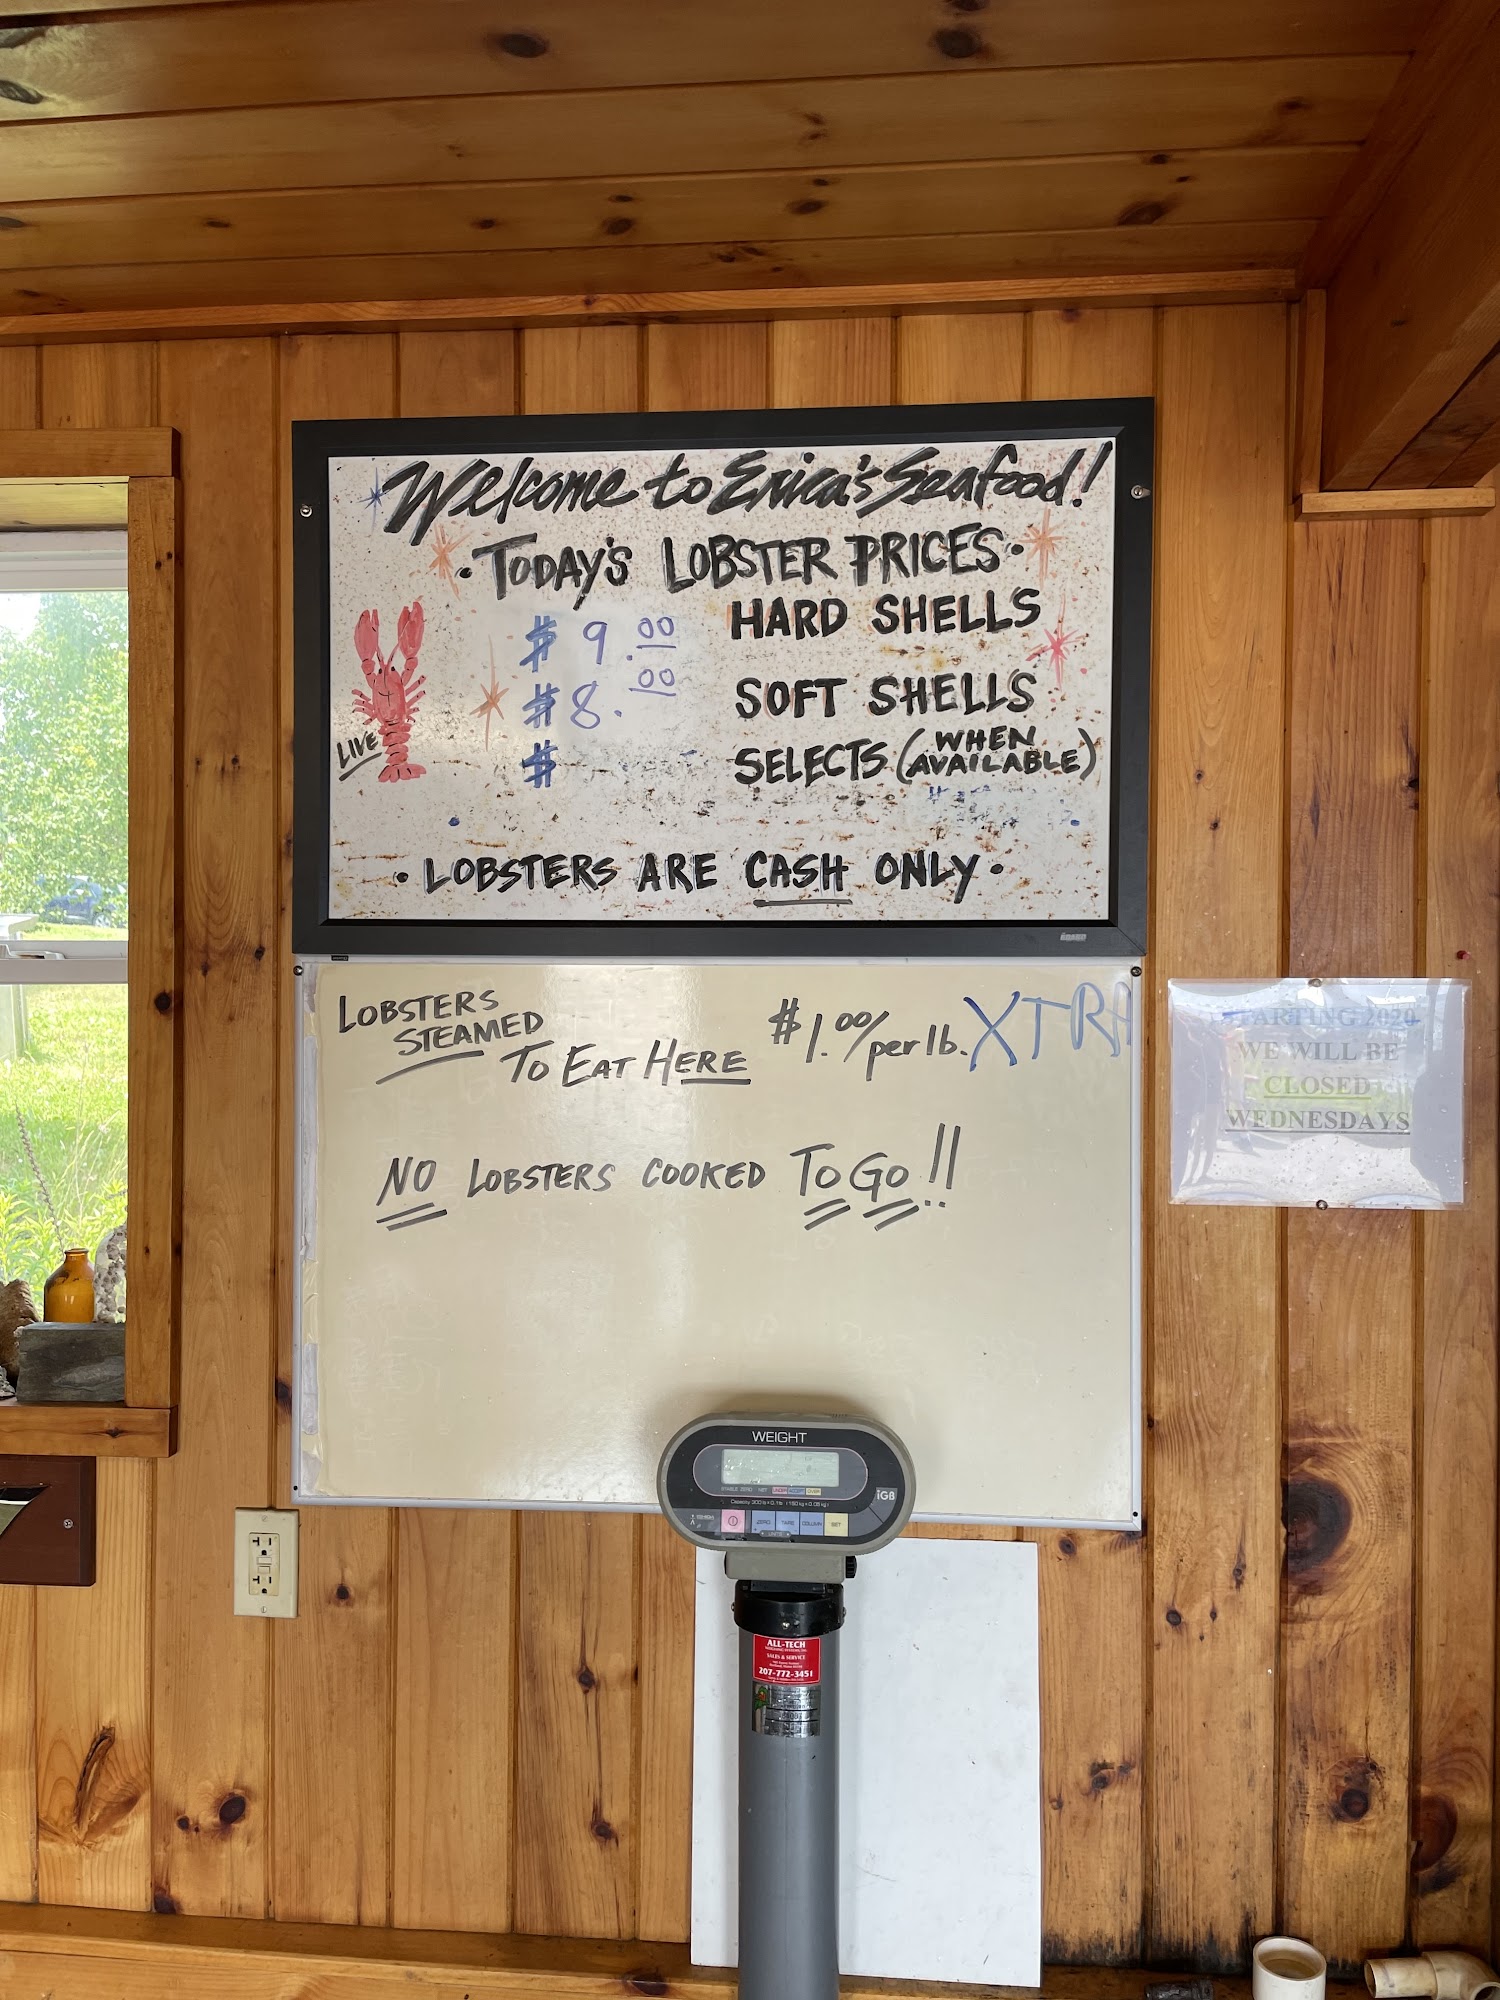 Welcome to Erica's Seafood!
• TODAY'S LOBSTER PRICES •
$ 9.00 HARD SHELLS
$ 8.00 SOFT SHELLS
$ SELECTS (WHEN AVAILABLE)
LIVE
• LOBSTERS ARE CASH ONLY •
LOBSTERS
STEAMED
TO EAT HERE $1.00/per lb. XTRA
NO LOBSTERS COOKED TO GO!!
STARTING 2020
WE WILL BE
CLOSED
WEDNESDAYS
WEIGHT
iGB
ZERO TARE COLUMN SET
ALL-TECH
SALES & SERVICE
207-772-3451